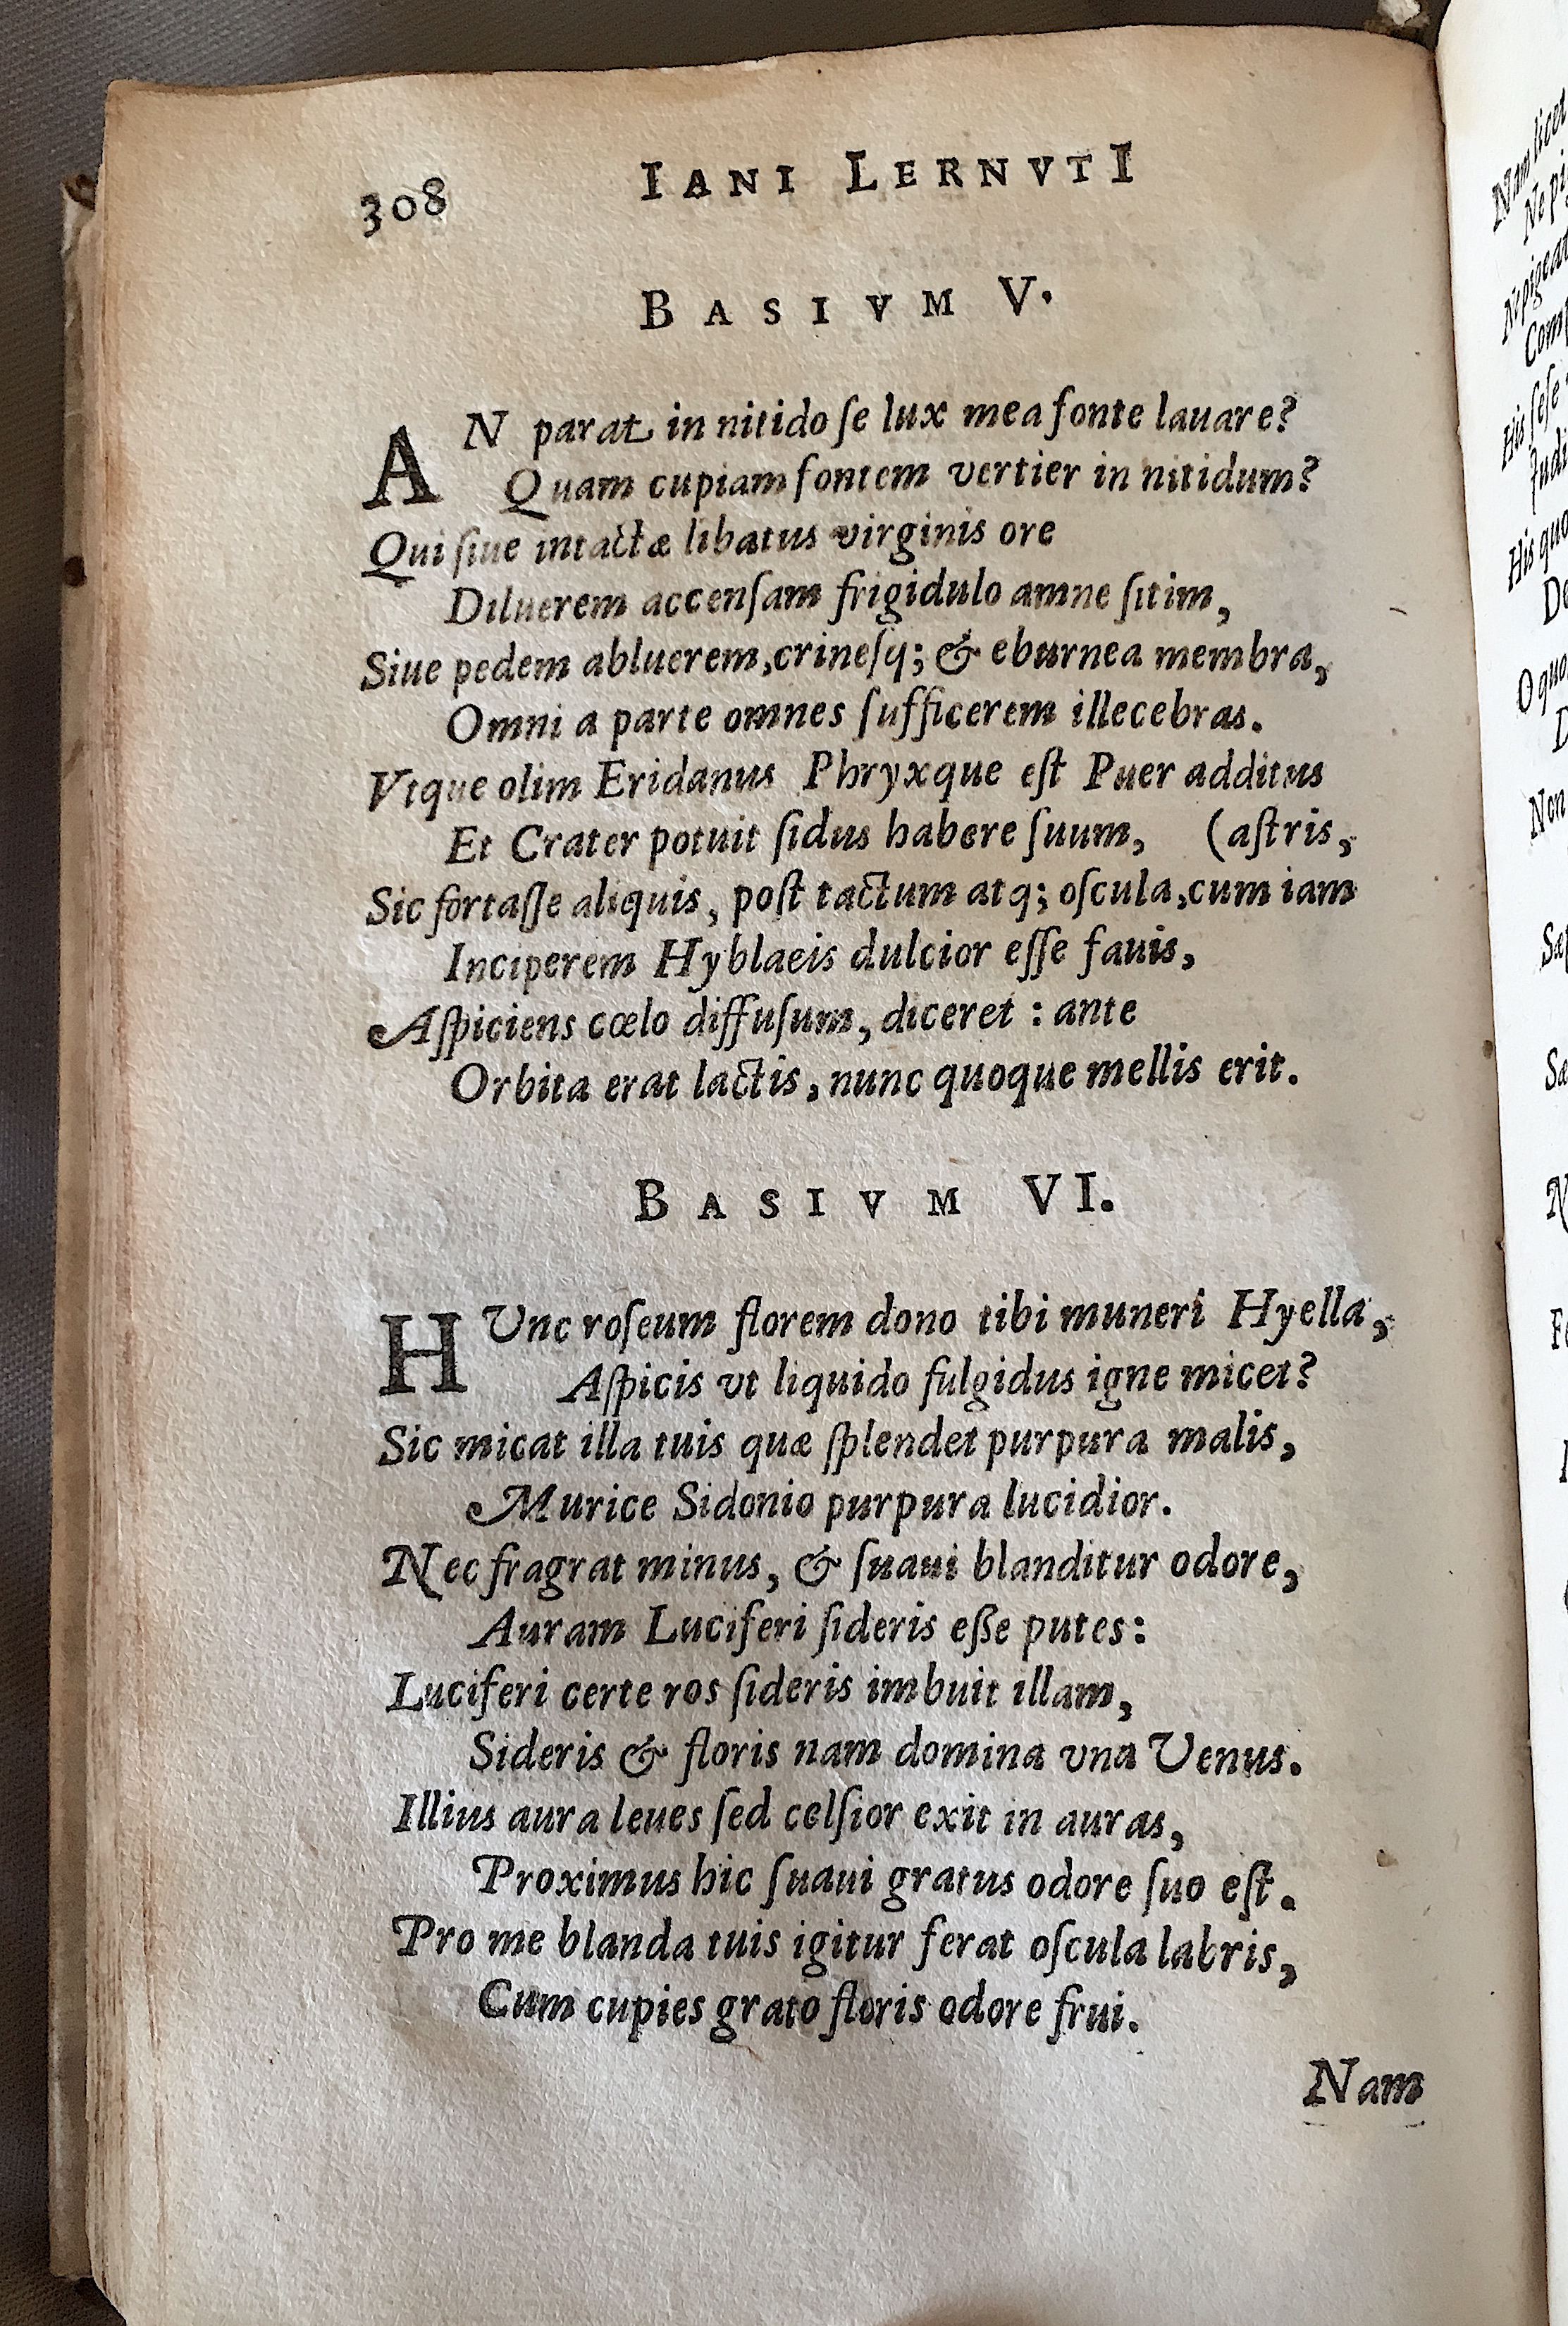 308 IANI LERNVTI
BASIVM V.
AN parat in nitido ſe lux mea fonte lauare?
Quam cupiam fontem vertier in nitidum?
Qui ſiue intactæ libatus virginis ore
Diluerem accenſam frigidulo amne ſitim,
Siue pedem abluerem, crineſq; & eburnea membra,
Omni a parte omnes ſufficerem illecebras.
Vtque olim Eridanus Phryxque eſt Puer additus
Et Crater potuit ſidus habere ſuum, (aſtris,
Sic fortaſſe aliquis, poſt tactum atq; oſcula, cum iam
Inciperem Hyblaeis dulcior eſſe fauis,
Aſpiciens cœlo diffuſum, diceret : ante
Orbita erat lactis, nunc quoque mellis erit.
BASIVM VI.
HUnc roſeum florem dono tibi muneri Hyella,
Aſpicis vt liquido fulgidus igne micet?
Sic micat illa tuis quæ ſplendet purpura malis,
Murice Sidonio purpura lucidior.
Nec fragrat minus, & ſuaui blanditur odore,
Auram Luciferi ſideris eſſe putes:
Luciferi certe ros ſideris imbuit illam,
Sideris & floris nam domina vna Venus.
Illius aura leues ſed celſior exit in auras,
Proximus hic ſuaui gratus odore ſuo eſt.
Pro me blanda tuis igitur ferat oſcula labris,
Cum cupies grato floris odore frui.
Nam
Nam licet